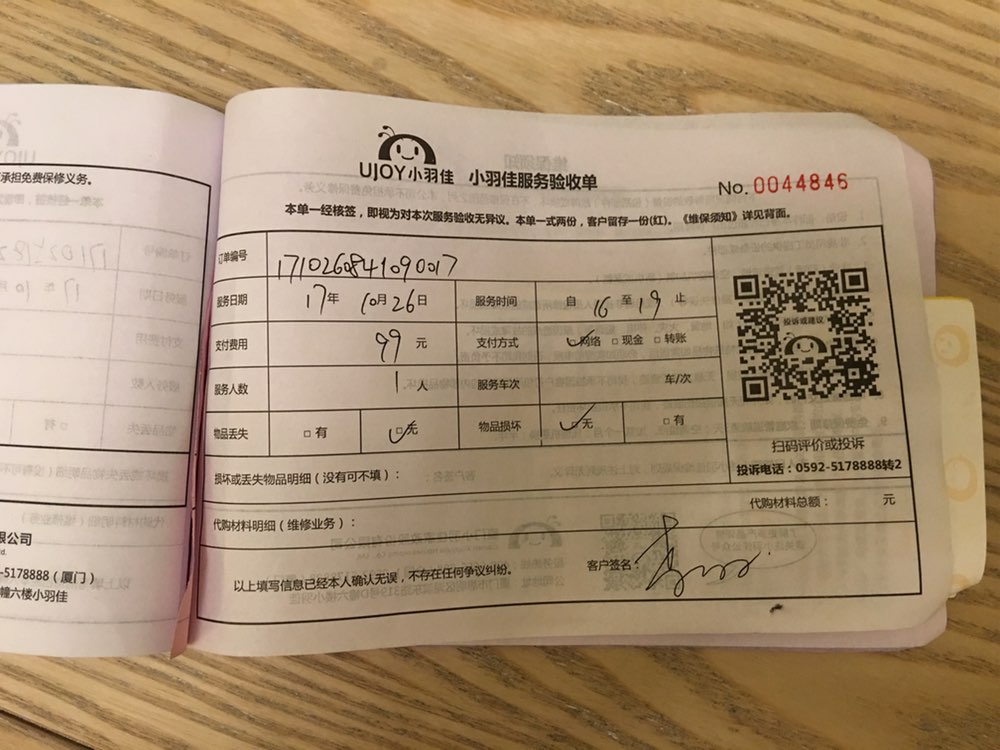 承担免费保修义务。
限公司
td.
-5178888（厦门）
幢六楼小羽佳
UJOY小羽佳 小羽佳服务验收单
No. 0044846
本单一经核签，即视为对本次服务验收无异议。本单一式两份，客户留存一份(红)。《维保须知》详见背面。
订单编号 1710260841090017
服务日期 17年 10月 26日 服务时间 自 16 至 19 止
支付费用 99 元 支付方式 网络 现金 转账
服务人数 1 人 服务车次 车/次
物品丢失 有 无 物品损坏 无 有
投诉或建议
扫码评价或投诉
投诉电话：0592-5178888转2
损坏或丢失物品明细（没有可不填）：
代购材料总额： 元
代购材料明细（维修业务）：
以上填写信息已经本人确认无误，不存在任何争议纠纷。 客户签名：